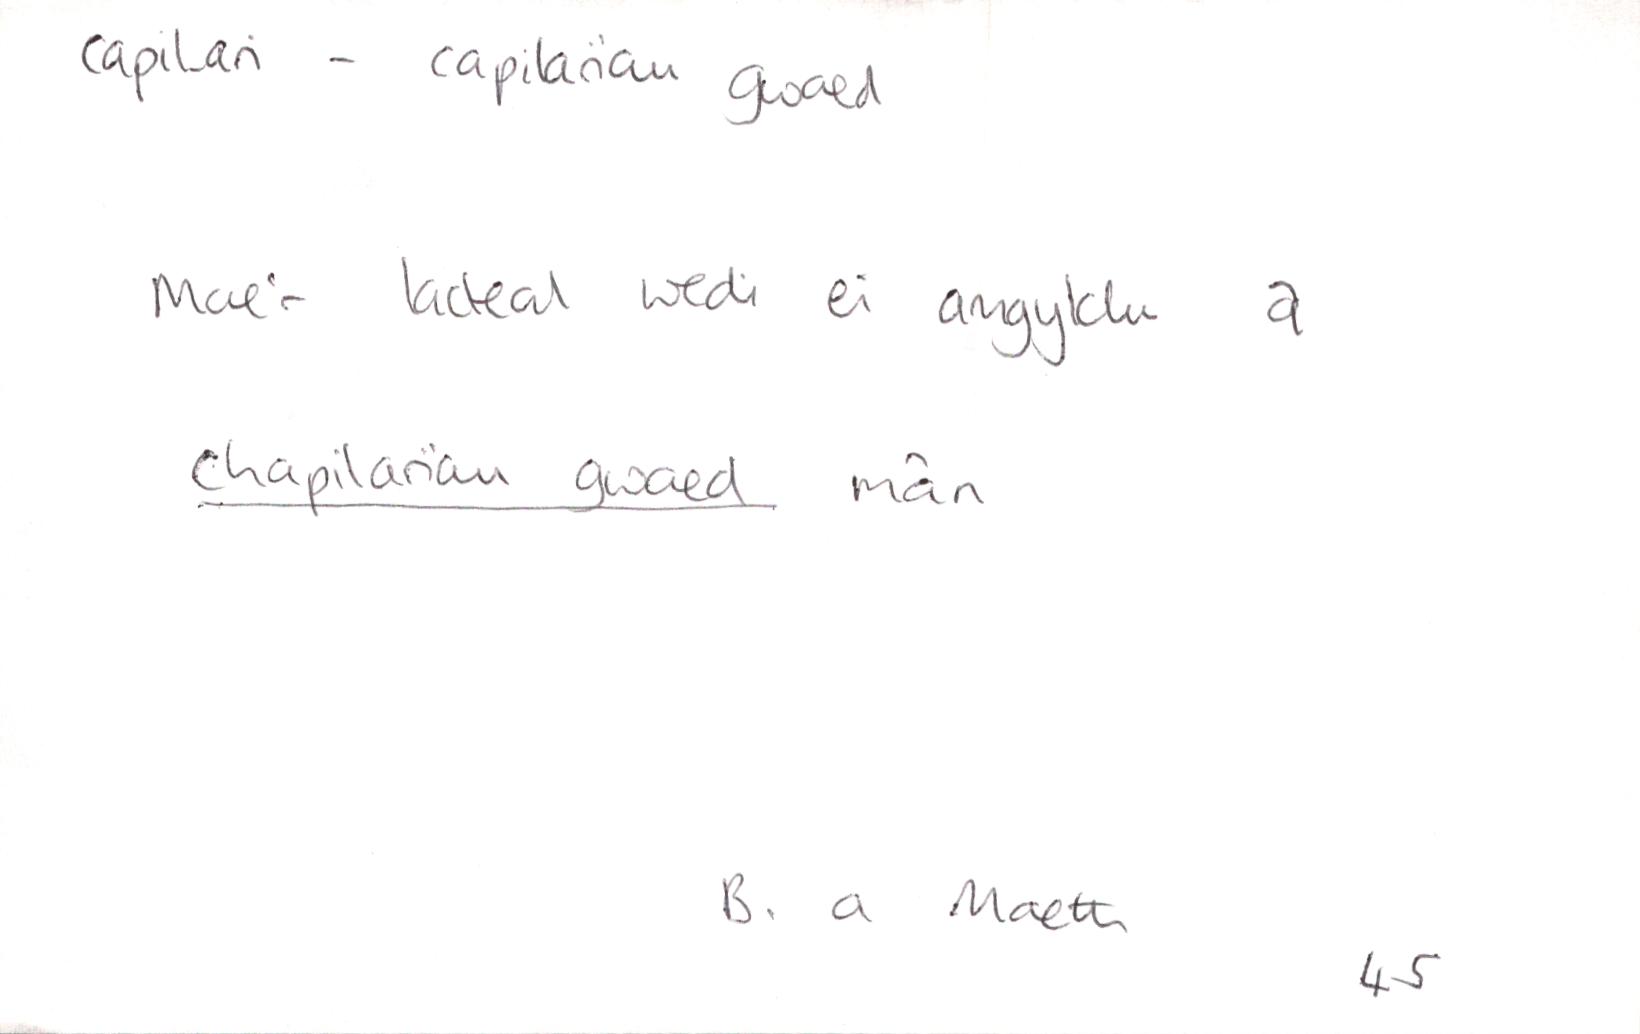 capilari - capilarïau gwaed
Mae'r lacteal wedi ei amgylchu â
chapilarïau gwaed mân
B. a Maeth
45